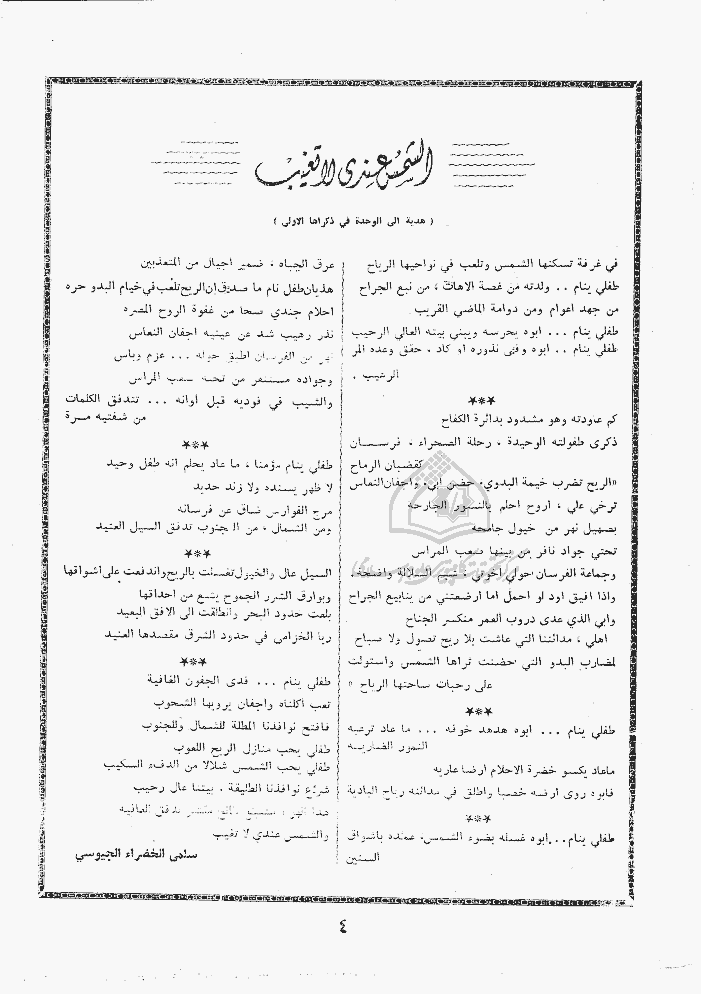 الشمس عندي لا تغيب
( هدية الى الوحدة في ذكراها الاولى )
في غرفة تسكنها الشمس وتلعب في نواحيها الرياح
طفلي ينام .. ولدته من غصة الاهات ، من نبع الجراح
من جهد اعوام ومن دوامة الماضي القريب
طفلي ينام ... ابوه يحرسه ويبني بيته العالي الرحيب
طفلي ينام .. ابوه وفى نذوره او كاد ، حقق وعده المر
الرغيب .
***
كم عاودته وهو مشدود بدائرة الكفاح
ذكرى طفولته الوحيدة ، رحلة الصحراء ، فرسان
كقضبان الرماح
«الريح تضرب خيمة البدوي، حضن ابي، واجفان النعاس
ترخي علي ، اروح احلم بالنسور الجارحه
بصهيل نهر من خيول جامحه
تحتي جواد نافر من بينها صعب المراس
وجماعة الفرسان حولي اخوتي ، شيم السلالة واضحة.
واذا افيق اود او احمل اما ارضعتني من ينابيع الجراح
وابي الذي عدى دروب العمر منكسر الجناح
اهلي ، مدائننا التي عاشت بلا ريح تصول ولا صباح
لمضارب البدو التي حضنت ثراها الشمس واستولت
على رحبات ساحتها الرياح »
***
طفلي ينام ... ابوه هدهد خوفه ... ما عاد ترعبه
النمور الضاريه
ماعاد يكسو خضرة الاحلام ارضا عاريه
فابوه روى ارضه خصبا واطلق في مدائنه رياح البادية
***
طفلي ينام .. ابوه غسله بضوء الشمس، عمده باشواق
السنين
عرق الجباه ، ضمير اجيال من المتعذبين
هذيان طفل نام ما صدق ان الريح تلعب في خيام البدو حره
احلام جندي صحا من غفوة الروح المضره
نذر رهيب شد عن عينيه اجفان النعاس
نهر من الفرسان اطبق حوله ... عزم وباس
وجواده مستنفر من تحته صعب المراس
والشيب في فوديه قبل اوانه ... تتدفق الكلمات
من شفتيه مرة
***
طفلي ينام مؤمنا ، ما عاد يحلم انه طفل وحيد
لا ظهر يسنده ولا زند حديد
مرج الفوارس ضاق عن فرسانه
ومن الشمال ، من الجنوب تدفق السيل العنيد
***
السيل عال والخيول تغسلت بالريح واندفعت على اشواقها
وبوارق الشرر الجموح يشع من احداقها
بلغت حدود البحر وانطلقت الى الافق البعيد
ريا الخزامى في حدود الشرق مقصدها العنيد
***
طفلي ينام ... فدى الجفون الغافية
تعب اكلناه واجفان يرويها الشحوب
فافتح نوافذنا المطلة للشمال وللجنوب
طفلي يحب منازل الريح اللعوب
طفلي يحب الشمس شلالا من الدفء السكيب
شرع نوافذنا الطليقة ، بيتنا عال رحيب
هذا النهر ،
والشمس عندي لا تغيب
سلمى الخضراء الجيوسي
٤